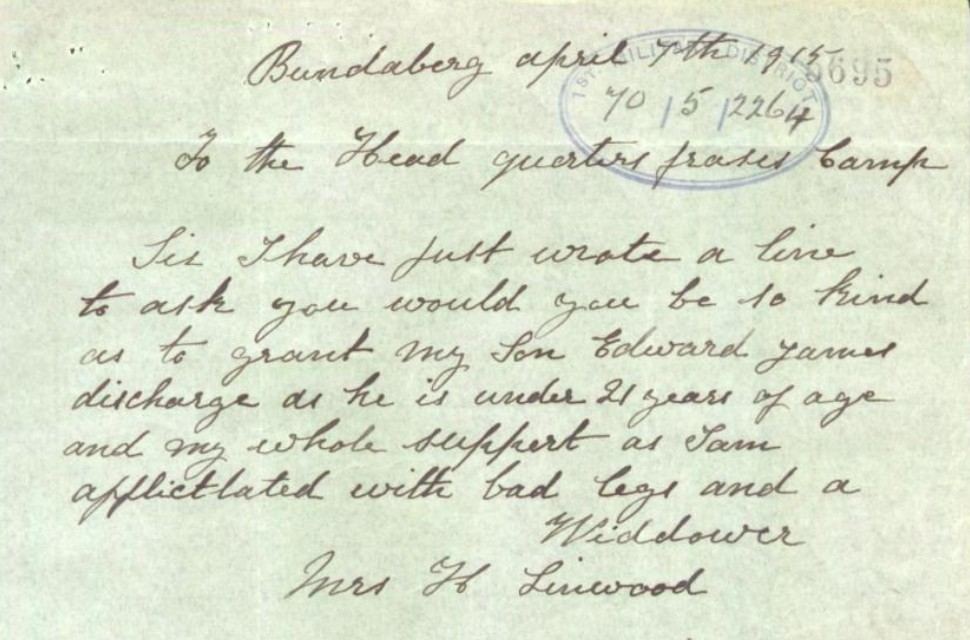 Bundaberg april 7th 1915
5695
1ST MILITARY DISTRICT
70 / 5 / 2264
To the Head quarters frases Camp
Sir I have just wrote a line
to ask you would you be so kind
as to grant my Son Edward James
discharge as he is under 21 years of age
and my whole support as I am
afflictlated with bad legs and a
Widdower
Mrs H Linwood